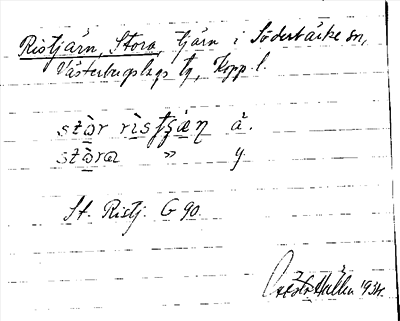 Ristjärn, Stora, tjärn i Söderbärke sn,
Västerbergslags tg, Kopp. l.
stòr ristjæ̀n ä.
stòra » y.
St. Ristj. G 90.
Hallén 1934.